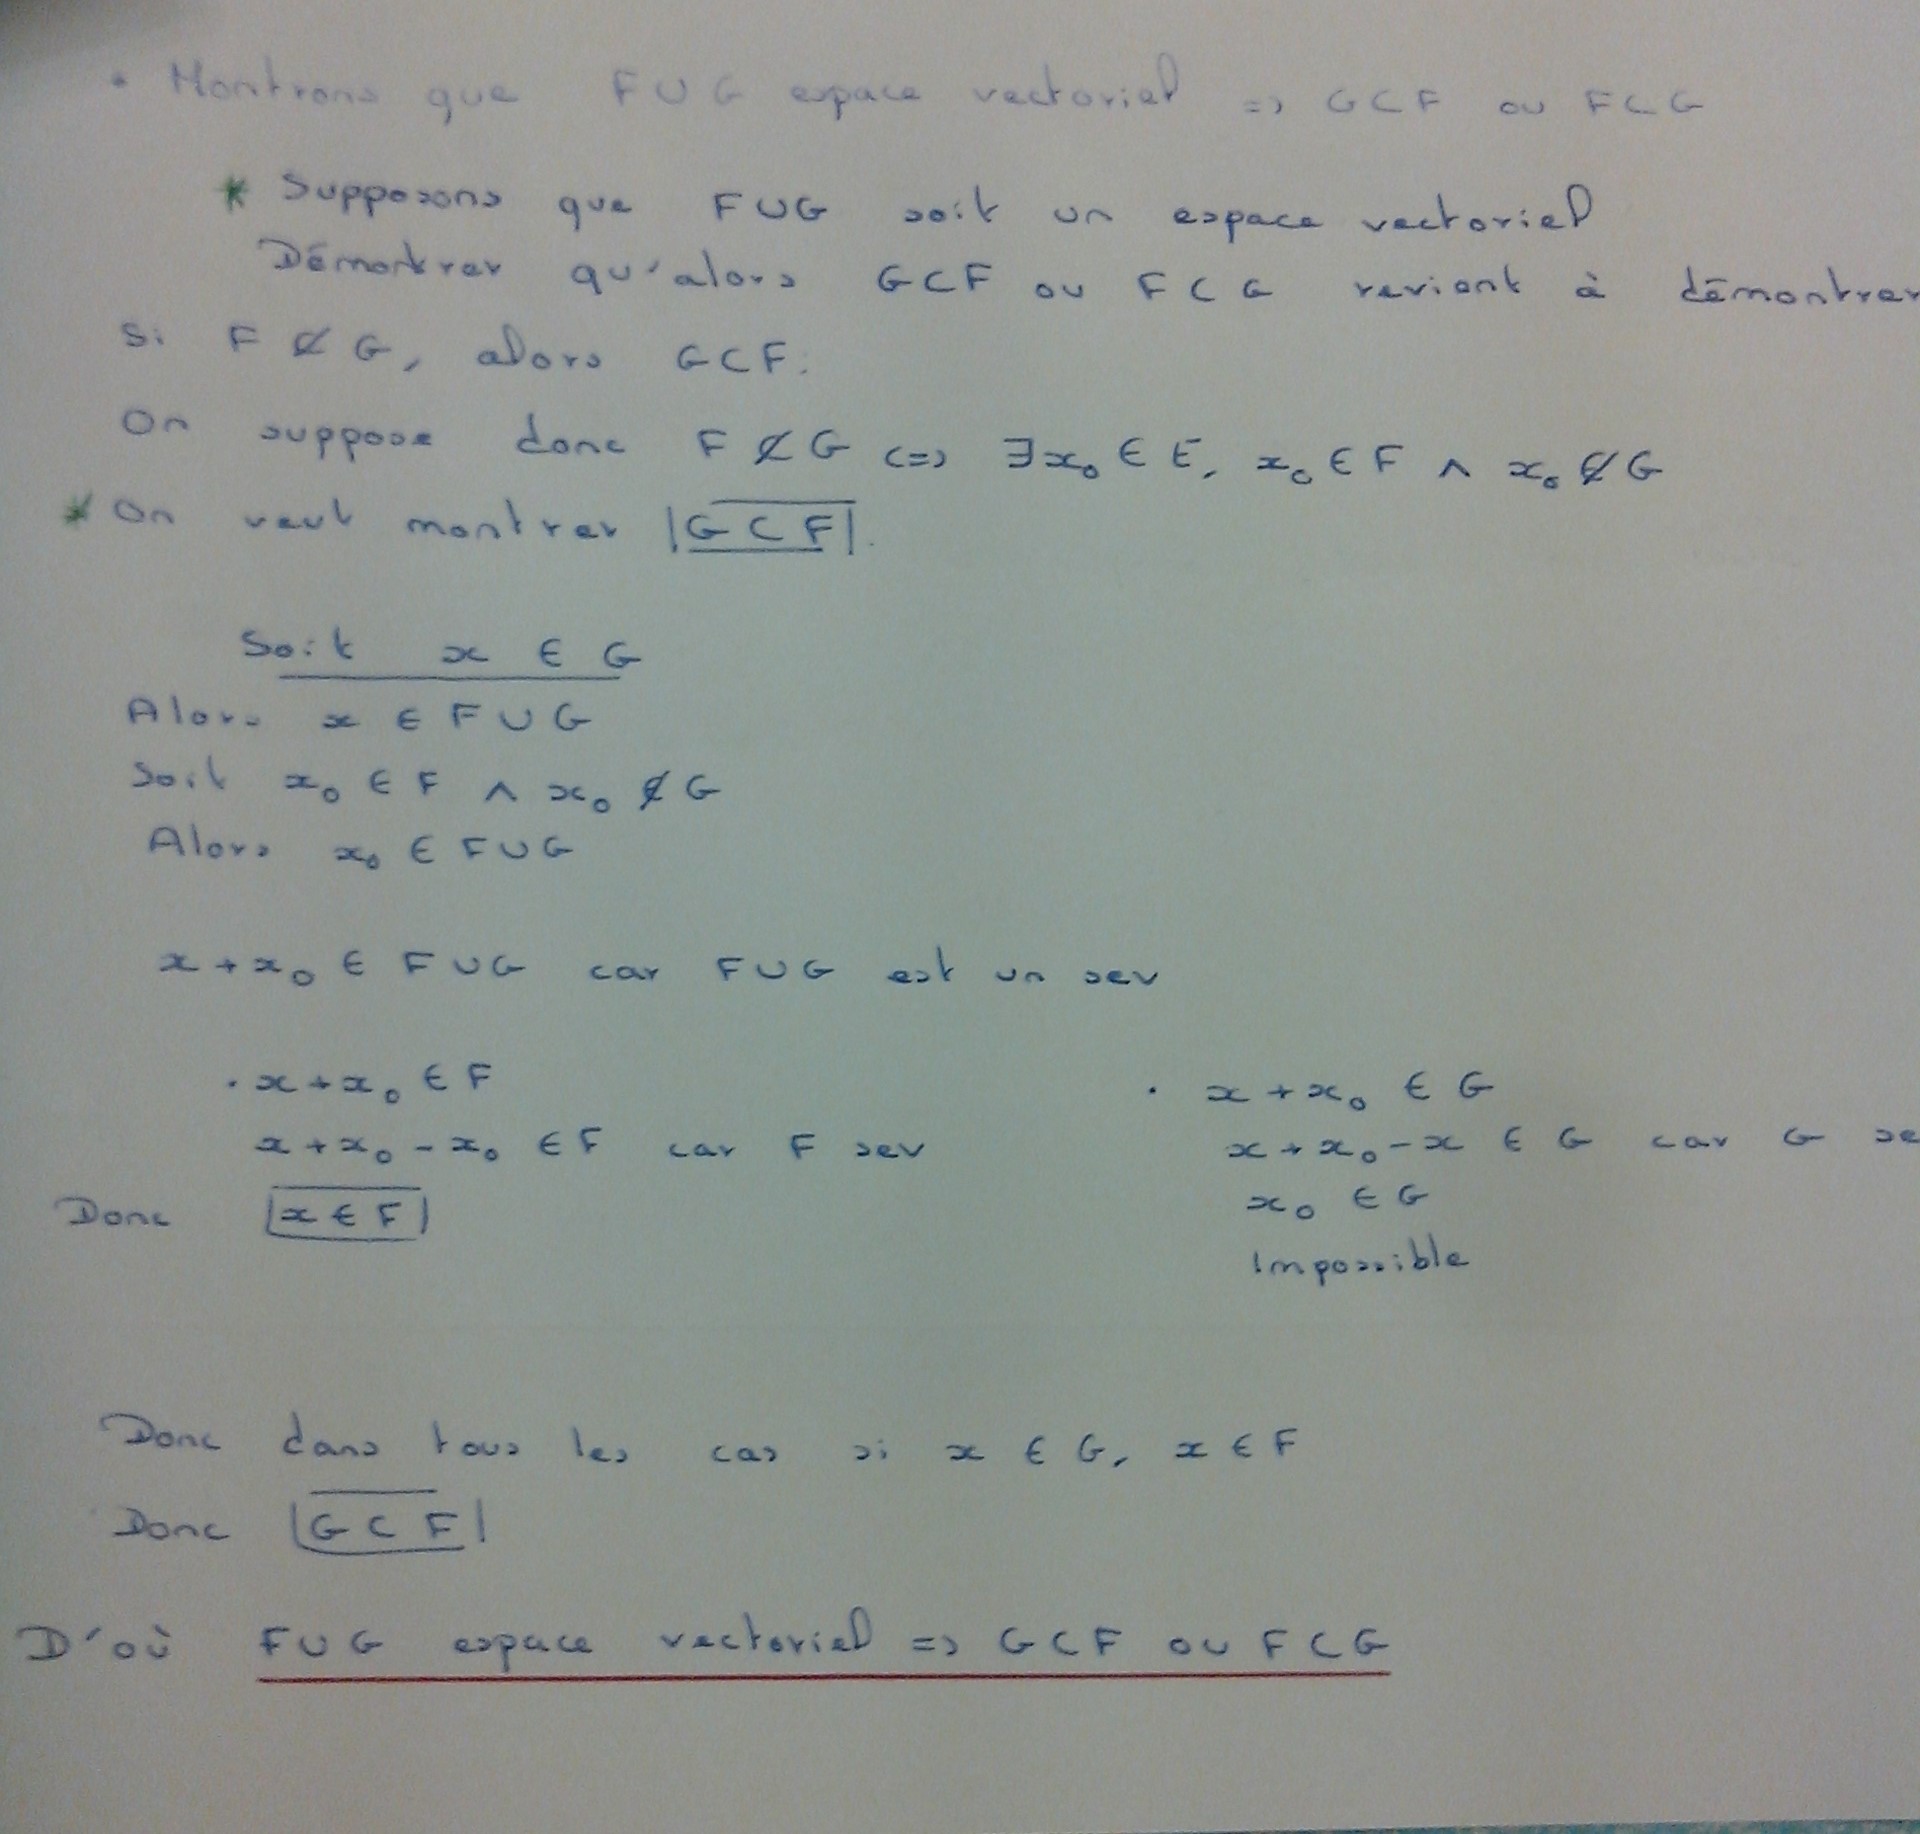 • Montrons que F ∪ G espace vectoriel => G ⊂ F ou F ⊂ G
* Supposons que F ∪ G soit un espace vectoriel
Démontrer qu'alors G ⊂ F ou F ⊂ G revient à démontrer
Si F ⊄ G, alors G ⊂ F.
On suppose donc F ⊄ G <=> ∃x₀ ∈ E, x₀ ∈ F ∧ x₀ ∉ G
* On veut montrer |G ⊂ F|.
Soit x ∈ G
Alors x ∈ F ∪ G
Soit x₀ ∈ F ∧ x₀ ∉ G
Alors x₀ ∈ F ∪ G
x + x₀ ∈ F ∪ G car F ∪ G est un sev
. x + x₀ ∈ F
x + x₀ - x₀ ∈ F car F sev
Donc |x ∈ F|
. x + x₀ ∈ G
x + x₀ - x ∈ G car G se
x₀ ∈ G
Impossible
Donc dans tous les cas si x ∈ G, x ∈ F
Donc |G ⊂ F|
D'où F ∪ G espace vectoriel => G ⊂ F ou F ⊂ G